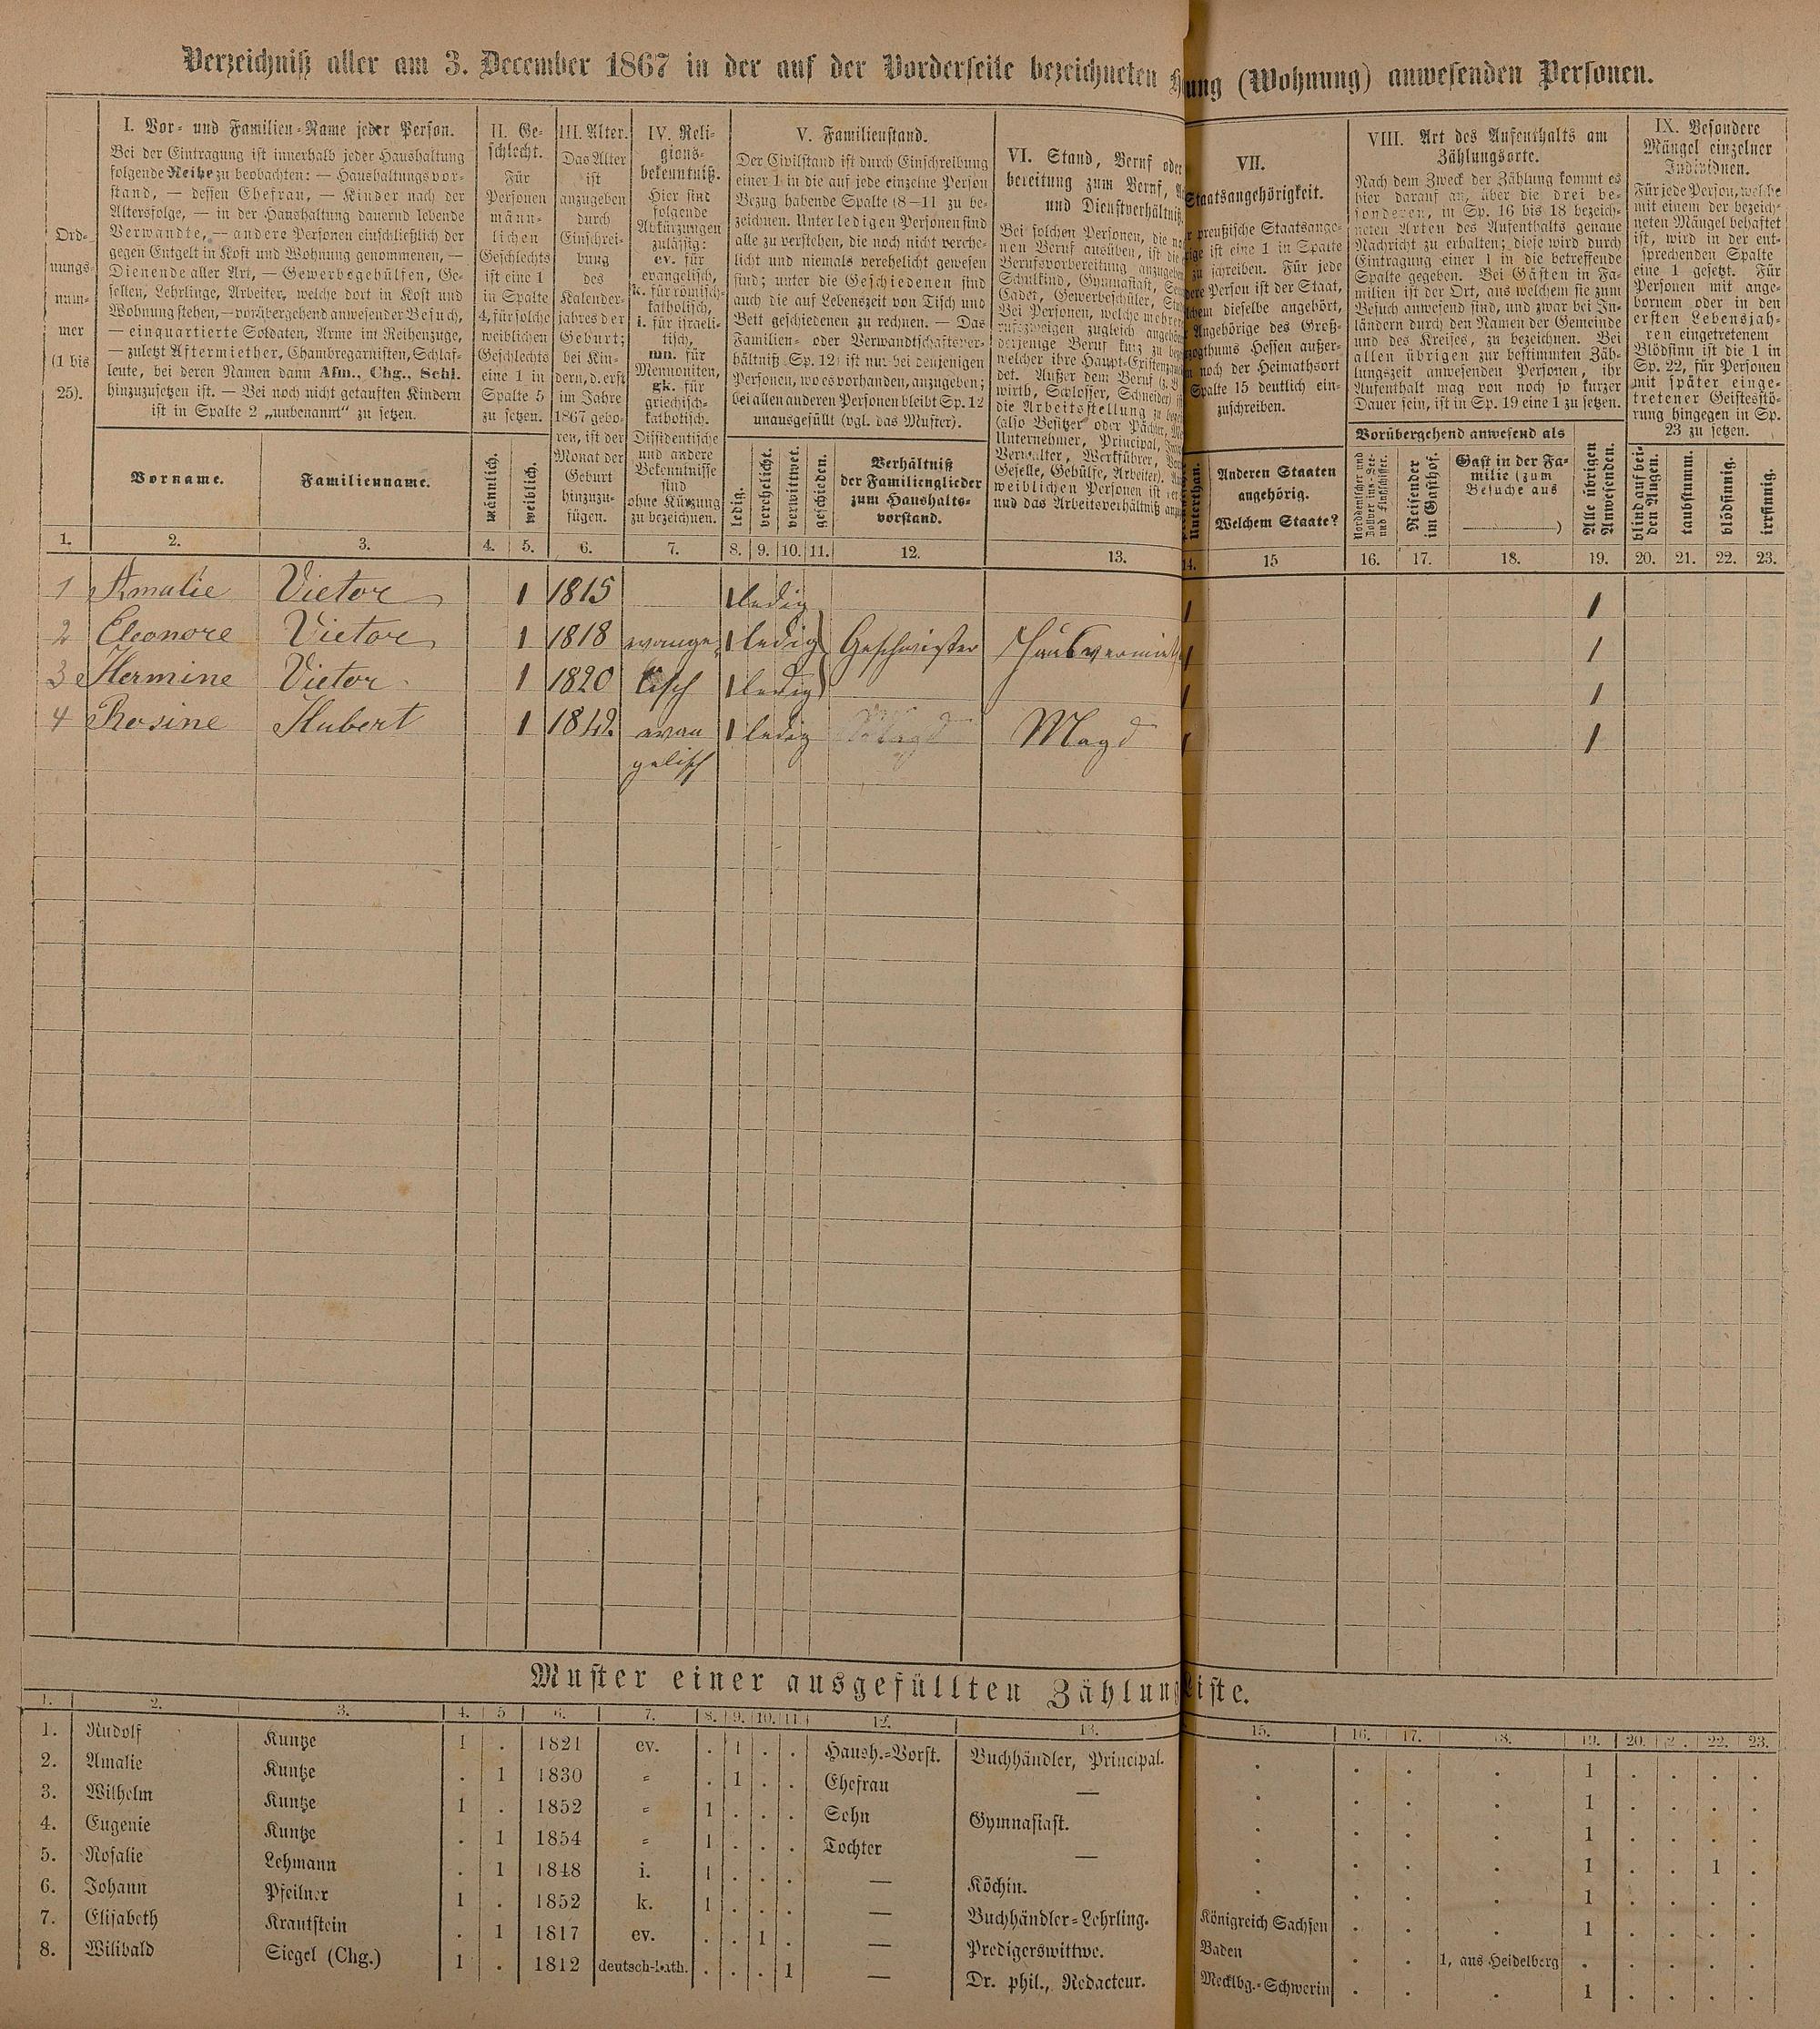 Verzeichniß aller am 3. December 1867 in der auf der Vorderseite bezeichneten
ung (Wohnung) anwesenden Personen.
Ord-
nungs-
num-
mer
(1 bis
25).
I. Vor- und Familien-Name jeder Person.
Bei der Eintragung ist innerhalb jeder Haushaltung
folgende Reihe zu beobachten: — Haushaltungsvor-
stand, — dessen Ehefrau, — Kinder nach der
Altersfolge, — in der Haushaltung dauernd lebende
Verwandte, — andere Personen einschließlich der
gegen Entgelt in Kost und Wohnung genommenen, —
Dienende aller Art, — Gewerbegehülfen, Ge-
sellen, Lehrlinge, Arbeiter, welche dort in Kost und
Wohnung stehen, — vorübergehend anwesender Besuch,
— einquartierte Soldaten, Arme im Reihenzuge,
— zuletzt Aftermiether, Chambregarnisten, Schlaf-
leute, bei deren Namen dann Afm., Chg., Schl.
hinzuzusetzen ist. — Bei noch nicht getauften Kindern
ist in Spalte 2 „unbenannt“ zu setzen.
Vorname.
Familienname.
II. Ge-
schlecht.
Für
Personen
männ-
lichen
Geschlechts
ist eine 1
in Spalte
4, für solche
weiblichen
Geschlechts
eine 1 in
Spalte 5
zu setzen.
männlich.
weiblich.
III. Alter.
Das Alter
ist
anzugeben
durch
Einschrei-
bung
des
Kalender-
jahres der
Geburt;
bei Kin-
dern, d. erst
im Jahre
1867 gebo-
ren, ist der
Monat der
Geburt
hinzuzu-
fügen.
IV. Reli-
gions-
bekenntniß.
Hier sind
folgende
Abkürzungen
zulässig:
ev. für
evangelisch,
k. für römisch-
katholisch,
i. für israeli-
tisch,
mn. für
Mennoniten,
gk. für
griechisch-
katholisch.
Dissidentische
und andere
Bekenntnisse
sind
ohne Kürzung
zu bezeichnen.
V. Familienstand.
Der Civilstand ist durch Einschreibung
einer 1 in die auf jede einzelne Person
Bezug habende Spalte (8—11 zu be-
zeichnen. Unter ledigen Personen sind
alle zu verstehen, die noch nicht verehe-
licht und niemals verehelicht gewesen
sind; unter die Geschiedenen sind
auch die auf Lebenszeit von Tisch und
Bett geschiedenen zu rechnen. — Das
Familien- oder Verwandtschaftsver-
hältniß (Sp. 12) ist nur bei denjenigen
Personen, wo es vorhanden, anzugeben;
bei allen anderen Personen bleibt Sp. 12
unausgefüllt (vgl. das Muster).
ledig.
verehelicht.
verwittwet.
geschieden.
Verhältniß
der Familienglieder
zum Haushalts-
vorstand.
VI. Stand, Beruf oder
bereitung zum Beruf,
und Dienstverhältniß.
Bei solchen Personen, die
nen Beruf ausüben, ist die
Berufsvorbereitung anzugeben
Schulkind, Gymnasiast,
Cadet, Gewerbeschüler,
Bei Personen, welche mehreren
rufszweigen zugleich
derjenige Beruf kurz zu
welcher ihre Haupt-Existenz
det. Außer dem Beruf
wirth, Schlosser, Schneider)
die Arbeitsstellung zu
(also Besitzer oder Pächter,
Unternehmer, Principal,
Verwalter, Werkführer,
Geselle, Gehülfe, Arbeiter).
weiblichen Personen ist
und das Arbeitsverhältniß
VII.
Staatsangehörigkeit.
preußische Staatsange-
ist eine 1 in Spalte
zu schreiben. Für jede
Person ist der Staat,
dieselbe angehört,
Angehörige des Groß-
Hessen außer-
noch der Heimathsort
Spalte 15 deutlich ein-
zuschreiben.
Anderen Staaten
angehörig.
Welchem Staate?
VIII. Art des Aufenthalts am
Zählungsorte.
Nach dem Zweck der Zählung kommt es
hier darauf an, über die drei be-
sonderen, in Sp. 16 bis 18 bezeich-
neten Arten des Aufenthalts genaue
Nachricht zu erhalten; diese wird durch
Eintragung einer 1 in die betreffende
Spalte gegeben. Bei Gästen in Fa-
milien ist der Ort, aus welchem sie zum
Besuch anwesend sind, und zwar bei In-
ländern durch den Namen der Gemeinde
und des Kreises, zu bezeichnen. Bei
allen übrigen zur bestimmten Zäh-
lungszeit anwesenden Personen, ihr
Aufenthalt mag von noch so kurzer
Dauer sein, ist in Sp. 19 eine 1 zu setzen.
Vorübergehend anwesend als
Norddeutscher und
Zollvereins-See-
und Flußschiffer.
Reisender
im Gasthof.
Gast in der Fa-
milie (zum
Besuche aus
)
Alle übrigen
Anwesenden.
IX. Besondere
Mängel einzelner
Individuen.
Für jede Person, welche
mit einem der bezeich-
neten Mängel behaftet
ist, wird in der ent-
sprechenden Spalte
eine 1 gesetzt. Für
Personen mit ange-
bornem oder in den
ersten Lebensjah-
ren eingetretenem
Blödsinn ist die 1 in
Sp. 22, für Personen
mit später einge-
tretener Geistesstö-
rung hingegen in Sp.
23 zu setzen.
blind auf bei-
den Augen.
taubstumm.
blödsinnig.
irrsinnig.
1. 2. 3. 4. 5. 6. 7. 8. 9. 10. 11. 12. 13. 14. 15 16. 17. 18. 19. 20. 21. 22. 23.
1 Amalie Vietor 1 1815 1 ledig 1 1
2 Eleonore Vietor 1 1818 evange- 1 ledig Geschwister Hausvermieth 1 1
3 Hermine Vietor 1 1820 lisch 1 ledig 1 1
4 Rosine Hubert 1 evan 1 ledig Magd 1 1
gelisch
Muster einer ausgefüllten Zählungsliste.
1. 2. 3. 4. 5 6. 7. 8. 9. 10. 11. 12. 13. 15. 16. 17. 18. 19. 20. 21. 22. 23.
1. Rudolf Kuntze 1 . 1821 ev. . 1 . . Haush.-Vorst. Buchhändler, Principal. . . . . 1 . . . .
2. Amalie Kuntze . 1 1830 „ . 1 . . Ehefrau — . . . . 1 . . . .
3. Wilhelm Kuntze 1 . 1852 „ 1 . . . Sohn Gymnasiast. . . . . 1 . . . .
4. Eugenie Kuntze . 1 1854 „ 1 . . . Tochter — . . . . 1 . . 1 .
5. Rosalie Lehmann . 1 1848 i. 1 . . . — Köchin. . . . . 1 . . . .
6. Johann Pfeilner 1 . 1852 k. 1 . . . — Buchhändler-Lehrling. Königreich Sachsen . . . 1 . . . .
7. Elisabeth Krautstein . 1 1817 ev. . . 1 . — Predigerswittwe. Baden . . 1, aus Heidelberg . . . . .
8. Wilibald Siegel (Chg.) 1 . 1812 deutsch-kath. . . . 1 — Dr. phil., Redacteur. Mecklbg.-Schwerin . . . 1 . . . .